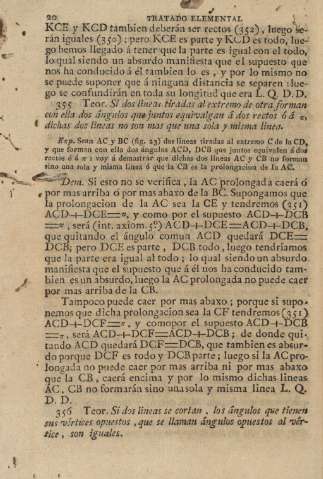 20 TRATADO ELEMENTAL
KCE y KCD tambien deberán ser rectos (352), luego se-
rán iguales (350); pero KCE es parte y KCD es todo, lue-
go hemos llegado á tener que la parte es igual con el todo,
lo qual siendo un absurdo manifiesta que el supuesto que
nos ha conducido á él tambien lo es, y por lo mismo no
se puede suponer que á ninguna distancia se separen: lue-
go se confundirán en toda su longitud que era L. Q. D. D.
355 Teor. Si dos líneas tiradas al extremo de otra forman
con ella dos ángulos que juntos equivalgan á dos rectos ó á π,
dichas dos líneas no son mas que una sola y misma línea.
Esp. Sean AC y BC (fig. 23) dos lineas tiradas al extremo C de la CD,
y que forman con ella dos ángulos ACD, DCB que juntos equivalen á dos
rectos ó á π: voy á demostrar que dichas dos lineas AC y CB no forman
sino una sola y misma linea ó que la CB es la prolongacion de la AC.
Dem. Si esto no se verifica, la AC prolongada caerá ó
por mas arriba ó por mas abaxo de la BC. Supongamos que
la prolongacion de la AC sea la CE y tendremos (351)
ACD+DCE=π, y como por el supuesto ACD+DCB
=π, será (int. axiom. 5º) ACD+DCE=ACD+DCB,
que quitando el ángulo comun ACD quedará DCE=
DCB; pero DCE es parte, DCB todo, luego tendríamos
que la parte era igual al todo; lo qual siendo un absurdo
manifiesta que el supuesto que á él nos ha conducido tam-
bien es un absurdo, luego la AC prolongada no puede caer
por mas arriba de la CB.
Tampoco puede caer por mas abaxo; porque si supo-
nemos que dicha prolongacion sea la CF tendremos (351)
ACD+DCF=π, y como por el supuesto ACD+DCB
=π, será ACD+DCF=ACD+DCB; de donde qui-
tando ACD quedará DCF=DCB, que tambien es absur-
do porque DCF es todo y DCB parte; luego si la AC pro-
longada no puede caer por mas arriba ni por mas abaxo
que la CB, caerá encima y por lo mismo dichas lineas
AC, CB no formarán sino una sola y misma linea L. Q.
D. D.
356 Teor. Si dos líneas se cortan, los ángulos que tienen
sus vértices opuestos, que se llaman ángulos opuestos al vér-
tice, son iguales.